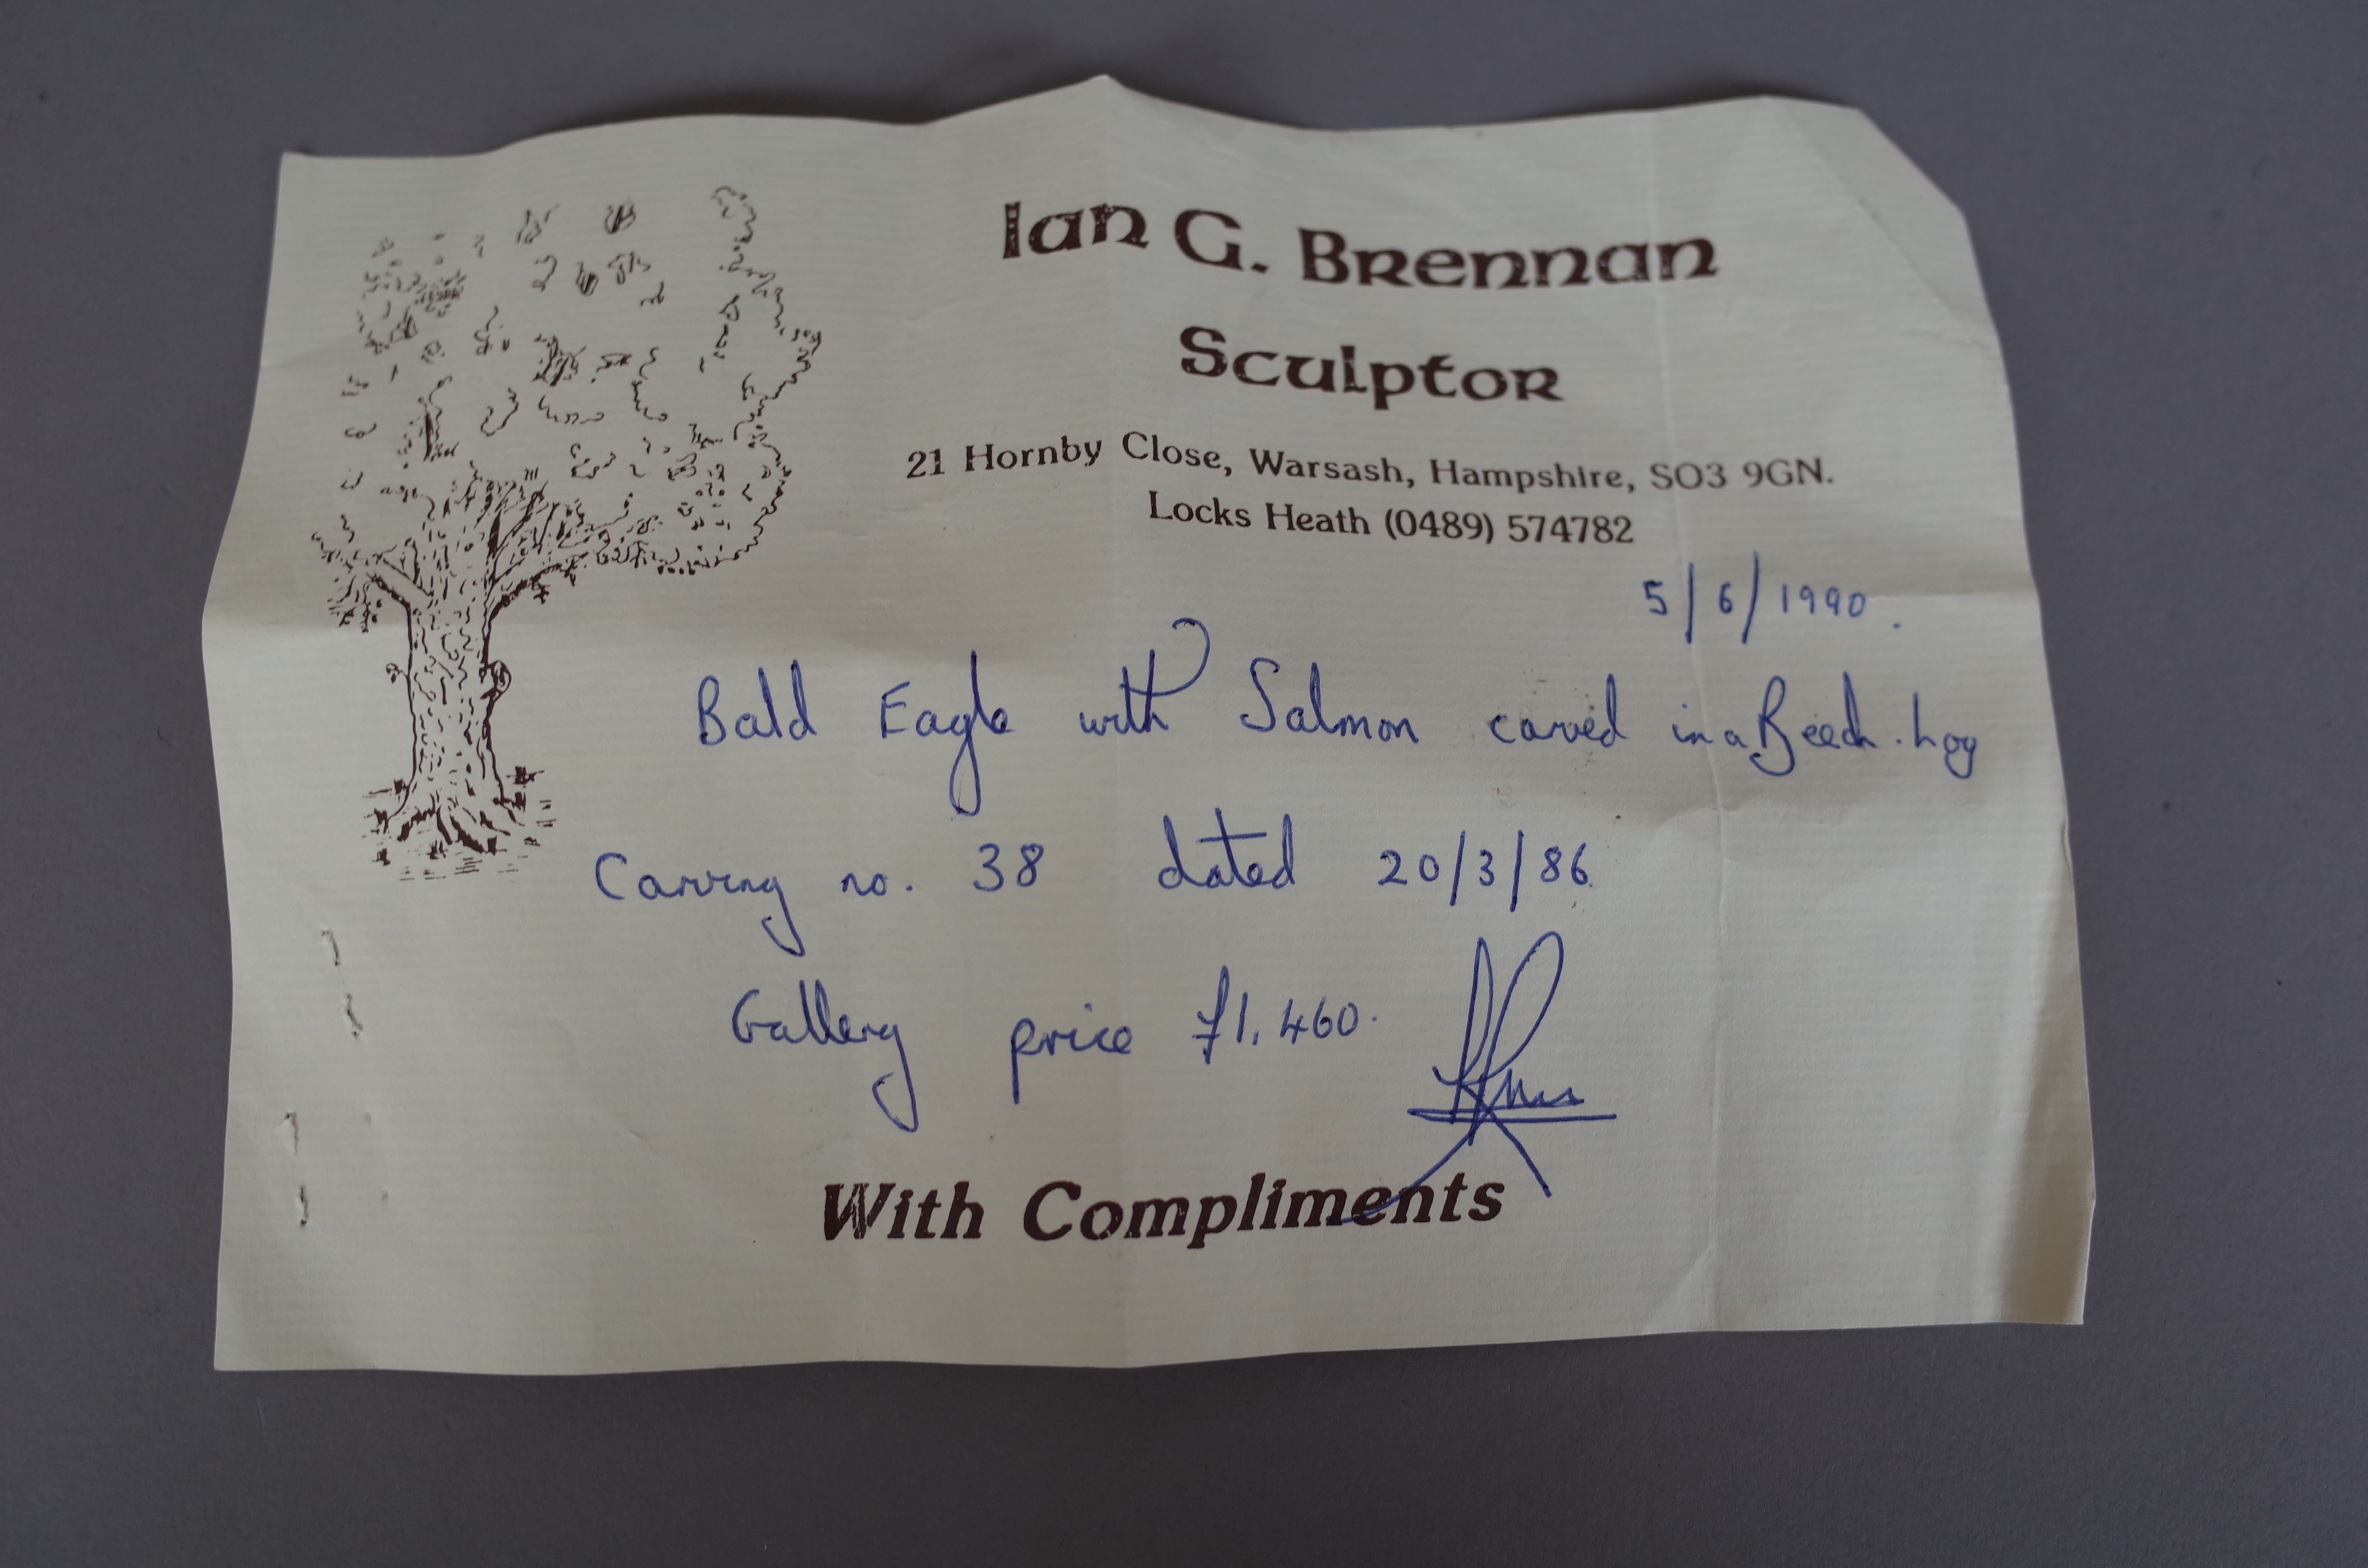 Ian G. Brennan
Sculptor
21 Hornby Close, Warsash, Hampshire, SO3 9GN.
Locks Heath (0489) 574782
5/6/1990.
Bald Eagle with Salmon carved in a Beech. Log
Carving no. 38 dated 20/3/86.
Gallery price £1,460.
With Compliments